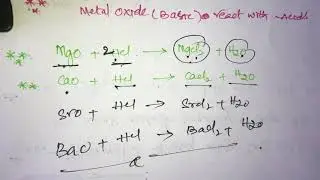 Metal Oxide (Basic) react with
MgO + 2HCl → MgCl2 + H2O
CaO + HCl → CaCl2 + H2O
SrO + HCl → SrCl2 + H2O
BaO + HCl → BaCl2 + H2O